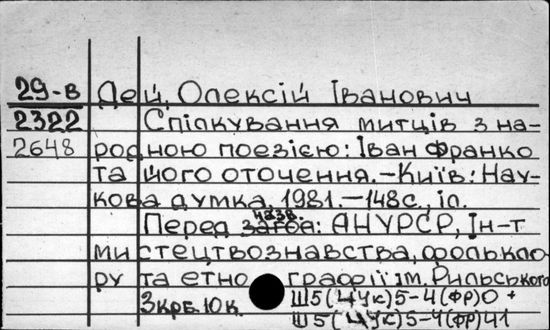 29-в Дей, Олексій Іванович
2322 Спілкування митців з на-
2648 родною поезією: Іван Франко
та його оточення.-Київ: Нау-
кова думка, 1981.-148с., іл.
назв.
Перед загол: АН УРСР, Ін-т
мистецтвознавства, фолькло-
ру та етнографії ім. Рильського
3крб.10к. Ш5(4Ук)5-4(Фр)0 +
Ш5(4Ук)5-4(Фр)41